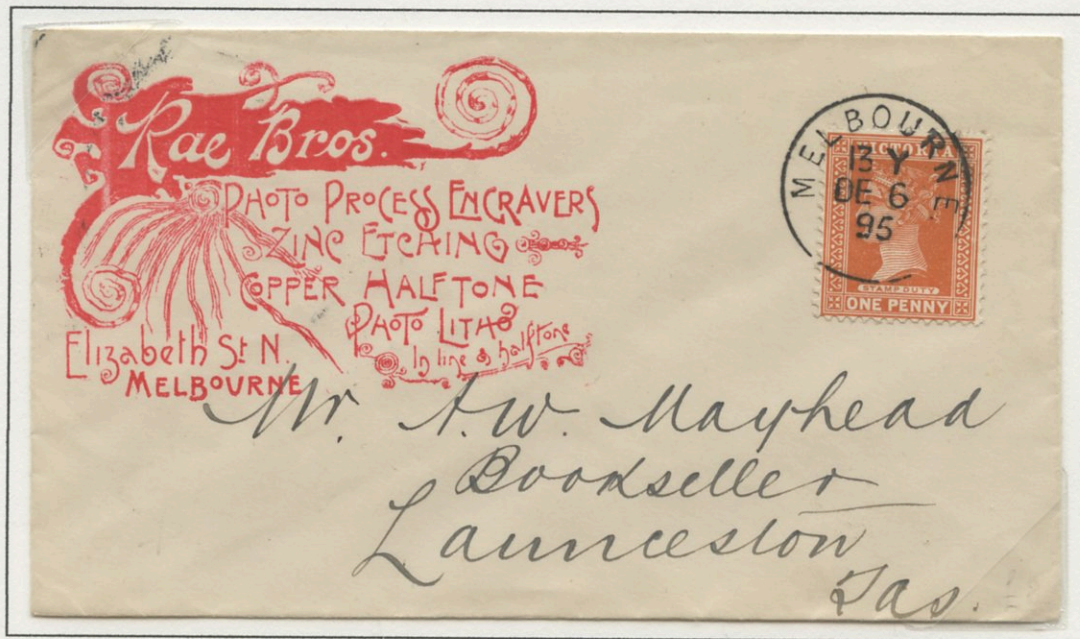 Rae Bros.
PHOTO PROCESS ENGRAVERS
ZINC ETCHING
COPPER HALFTONE
PHOTO LITHO
In line & halftone
Elizabeth St N.
MELBOURNE
MELBOURNE
13 Y
DE 6
95
VICTORIA
STAMP DUTY
ONE PENNY
Mr. A. W. Mayhead
Bookseller
Launceston
Tas.